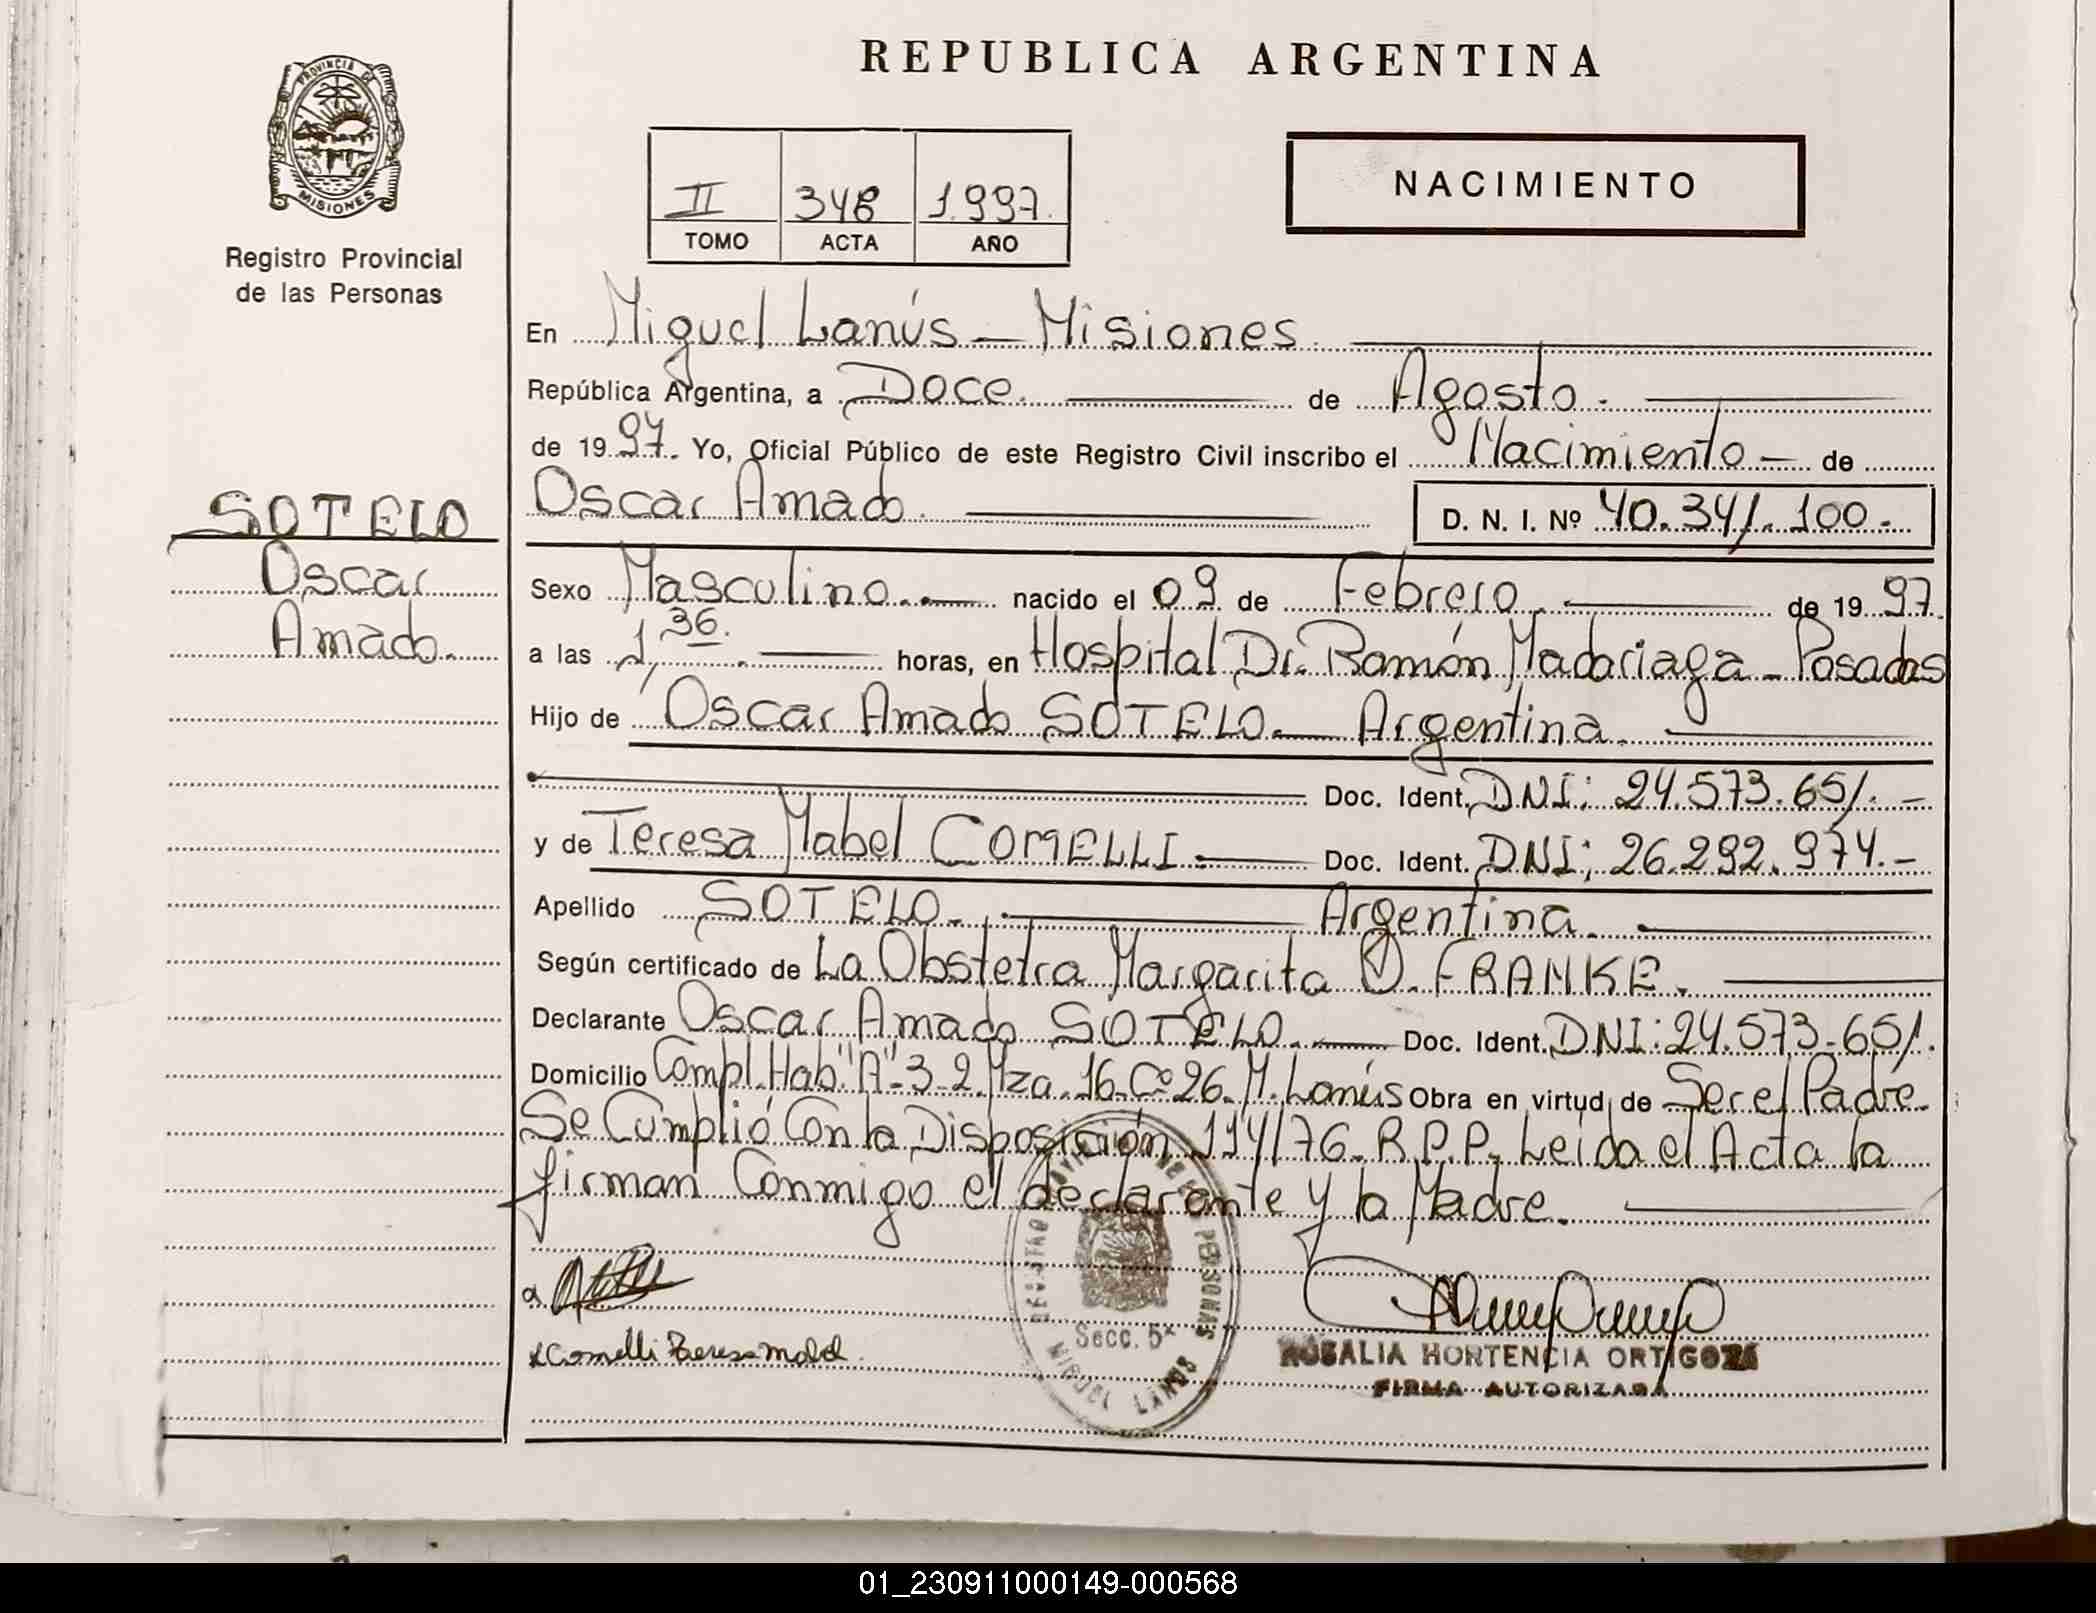 REPUBLICA ARGENTINA
PROVINCIA DE
MISIONES
Registro Provincial
de las Personas
II 348 1.997.
TOMO ACTA AÑO
NACIMIENTO
En Miguel Lanús - Misiones.
República Argentina, a Doce. de Agosto.
de 1997. Yo, Oficial Público de este Registro Civil inscribo el Nacimiento - de
Oscar Amado. D. N. I. Nº 40.341.100.-
SOTELO
Oscar
Amado.
Sexo Masculino.- nacido el 09 de Febrero. de 1997.
a las 1,36. horas, en Hospital Dr. Ramón Madariaga - Posadas
Hijo de Oscar Amado SOTELO.- Argentina.
Doc. Ident. DNI: 24.573.651.-
y de Teresa Mabel COMELLI.- Doc. Ident. DNI: 26.292.974.-
Apellido SOTELO. Argentina.
Según certificado de La Obstetra Margarita O. FRANKE.
Declarante Oscar Amado SOTELO. Doc. Ident. DNI: 24.573.651.
Domicilio Compl. Hab. "A" - 3.2. Mza. 16. Cº 26. M. Lanús obra en virtud de Ser el Padre.
Se Cumplió Con la Disposición 114/76. R.P.P. Leída el Acta la
firman Conmigo el declarante y la Madre.
Comelli Teresa Mabel
REGISTRO PROVINCIAL DE LAS PERSONAS
Secc. 5ª
MIGUEL LANUS
ROSALIA HORTENCIA ORTIGOZA
FIRMA AUTORIZADA
01_230911000149-000568